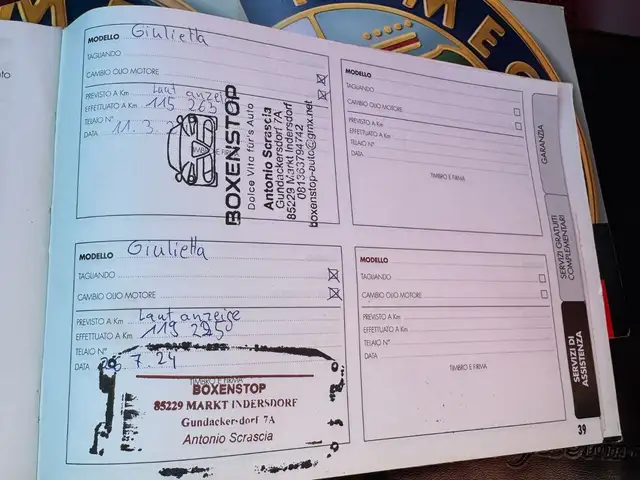 MODELLO Giulietta
TAGLIANDO
CAMBIO OLIO MOTORE
PREVISTO A Km Laut anzeige
EFFETTUATO A Km 115 263
TELAIO N°
DATA 11.3.
BOXENSTOP
Dolce Vita für's Auto
Antonio Scrascia
Gundackersdorf 7A
85229 Markt Indersdorf
081363794742
boxenstop-auto@gmx.net
MODELLO
TAGLIANDO
CAMBIO OLIO MOTORE
PREVISTO A Km
EFFETTUATO A Km
TELAIO N°
DATA
TIMBRO E FIRMA
MODELLO Giulietta
TAGLIANDO
CAMBIO OLIO MOTORE
PREVISTO A Km Laut anzeige
EFFETTUATO A Km
TELAIO N°
DATA 7.24
TIMBRO E FIRMA
BOXENSTOP
85229 MARKT INDERSDORF
Gundackersdorf 7A
Antonio Scrascia
MODELLO
TAGLIANDO
CAMBIO OLIO MOTORE
PREVISTO A Km
EFFETTUATO A Km
TELAIO N°
DATA
TIMBRO E FIRMA
GARANZIA
SERVIZI GRATUITI
COMPLEMENTARI
SERVIZI DI
ASSISTENZA
39